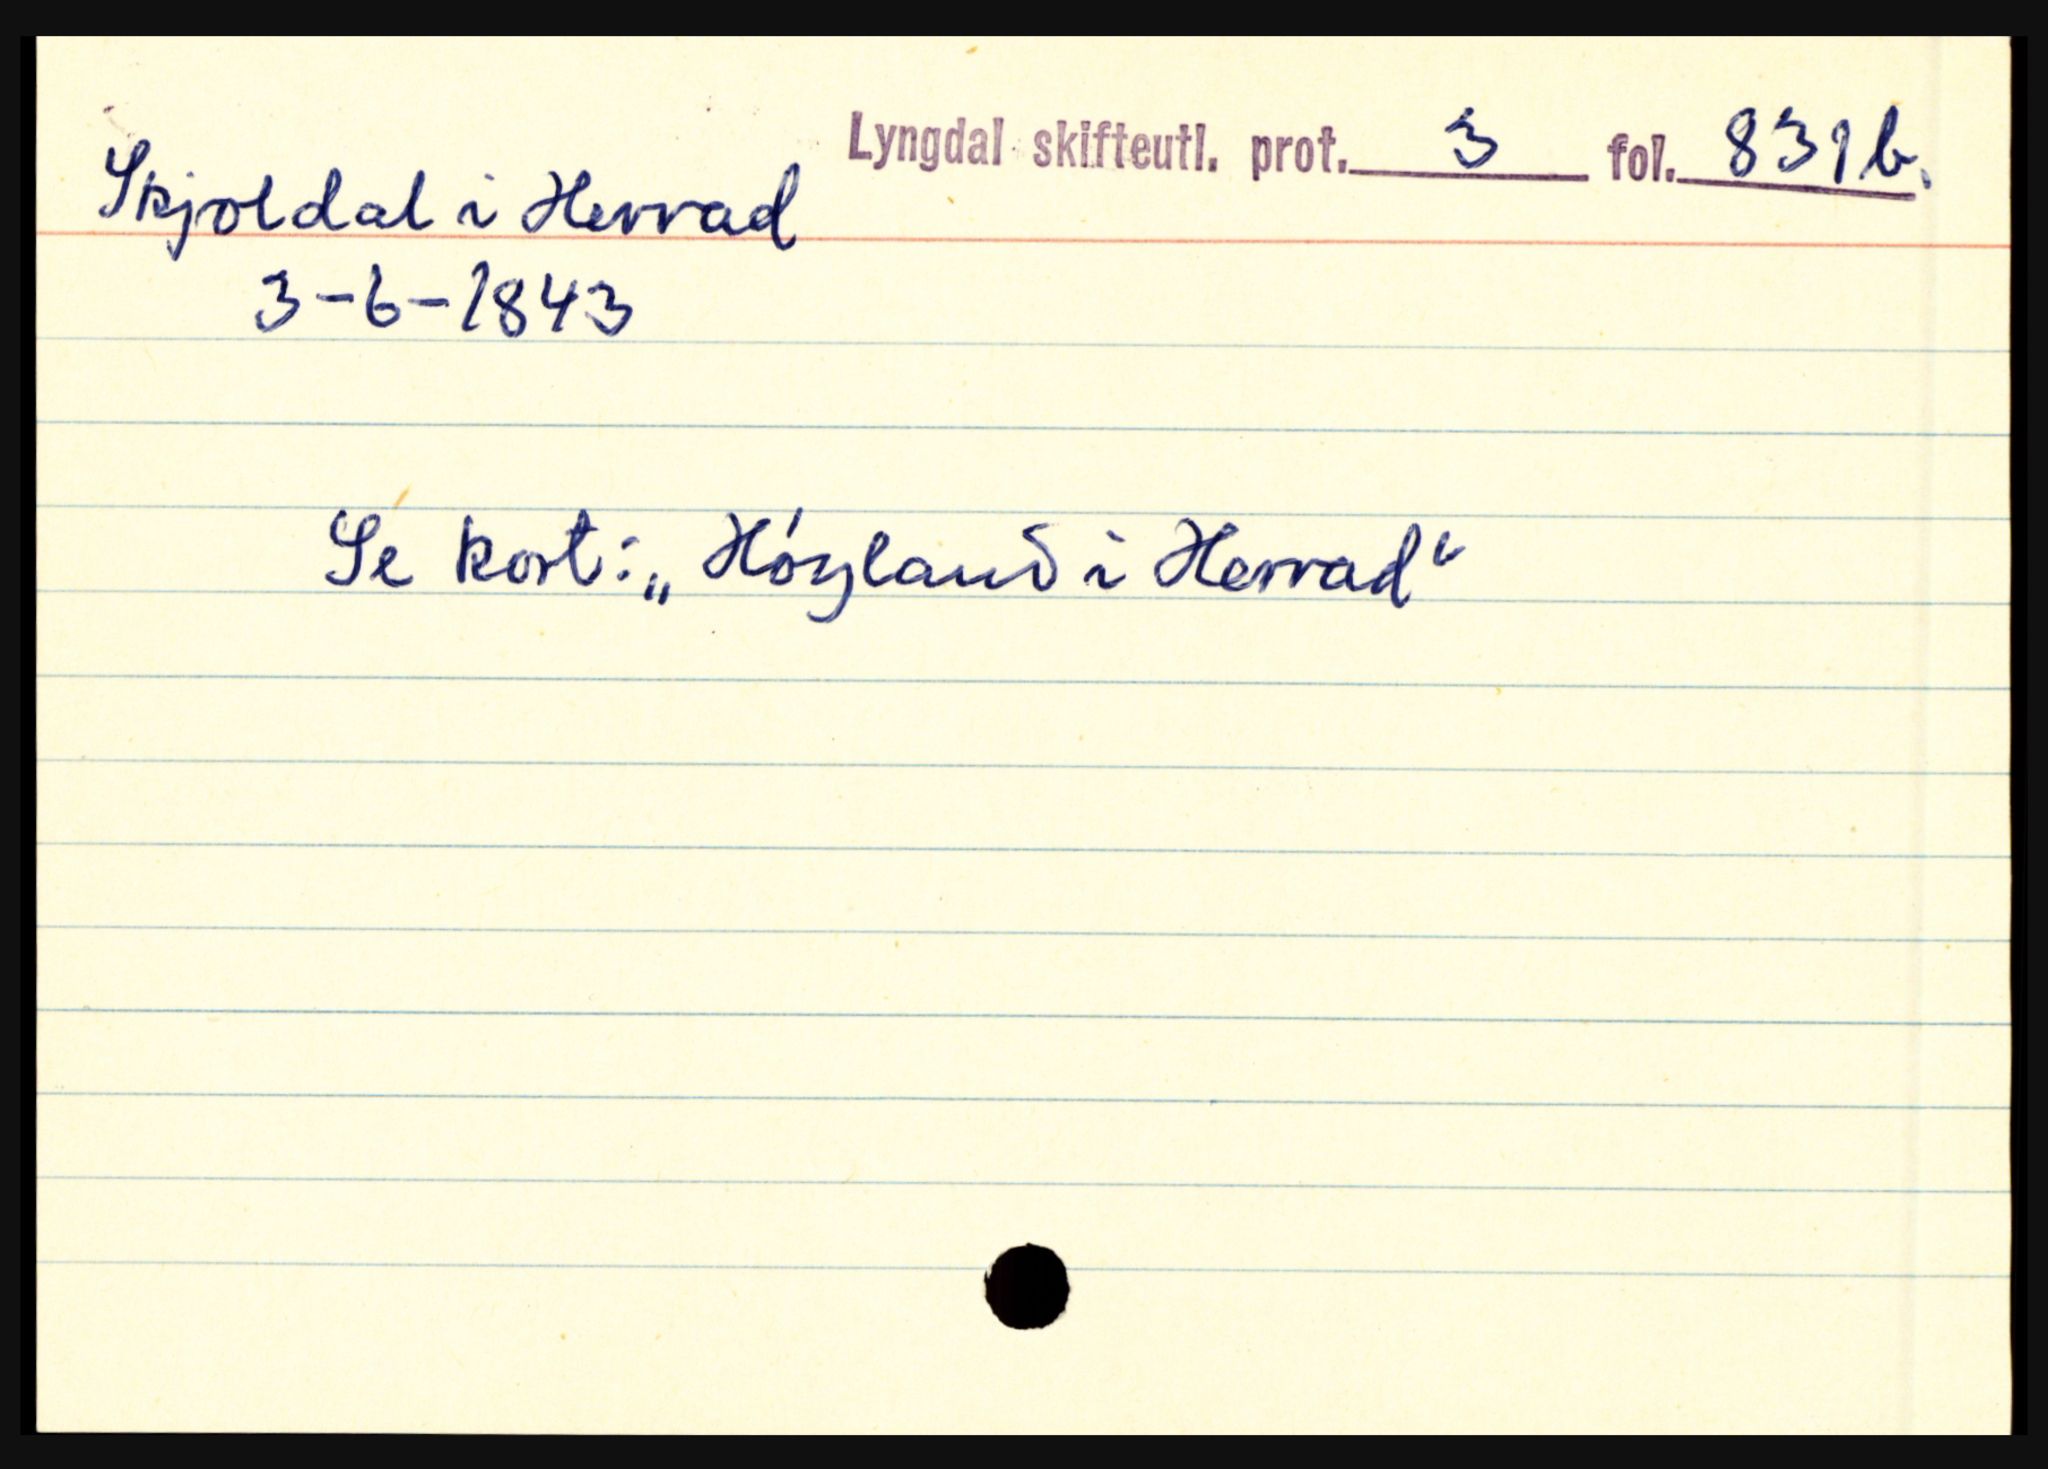 Lyngdal skifteutl. prot. 3 fol. 831b.
Skjoldal i Herrad
3-6-1843
Se kort: „Høyland i Herrad“